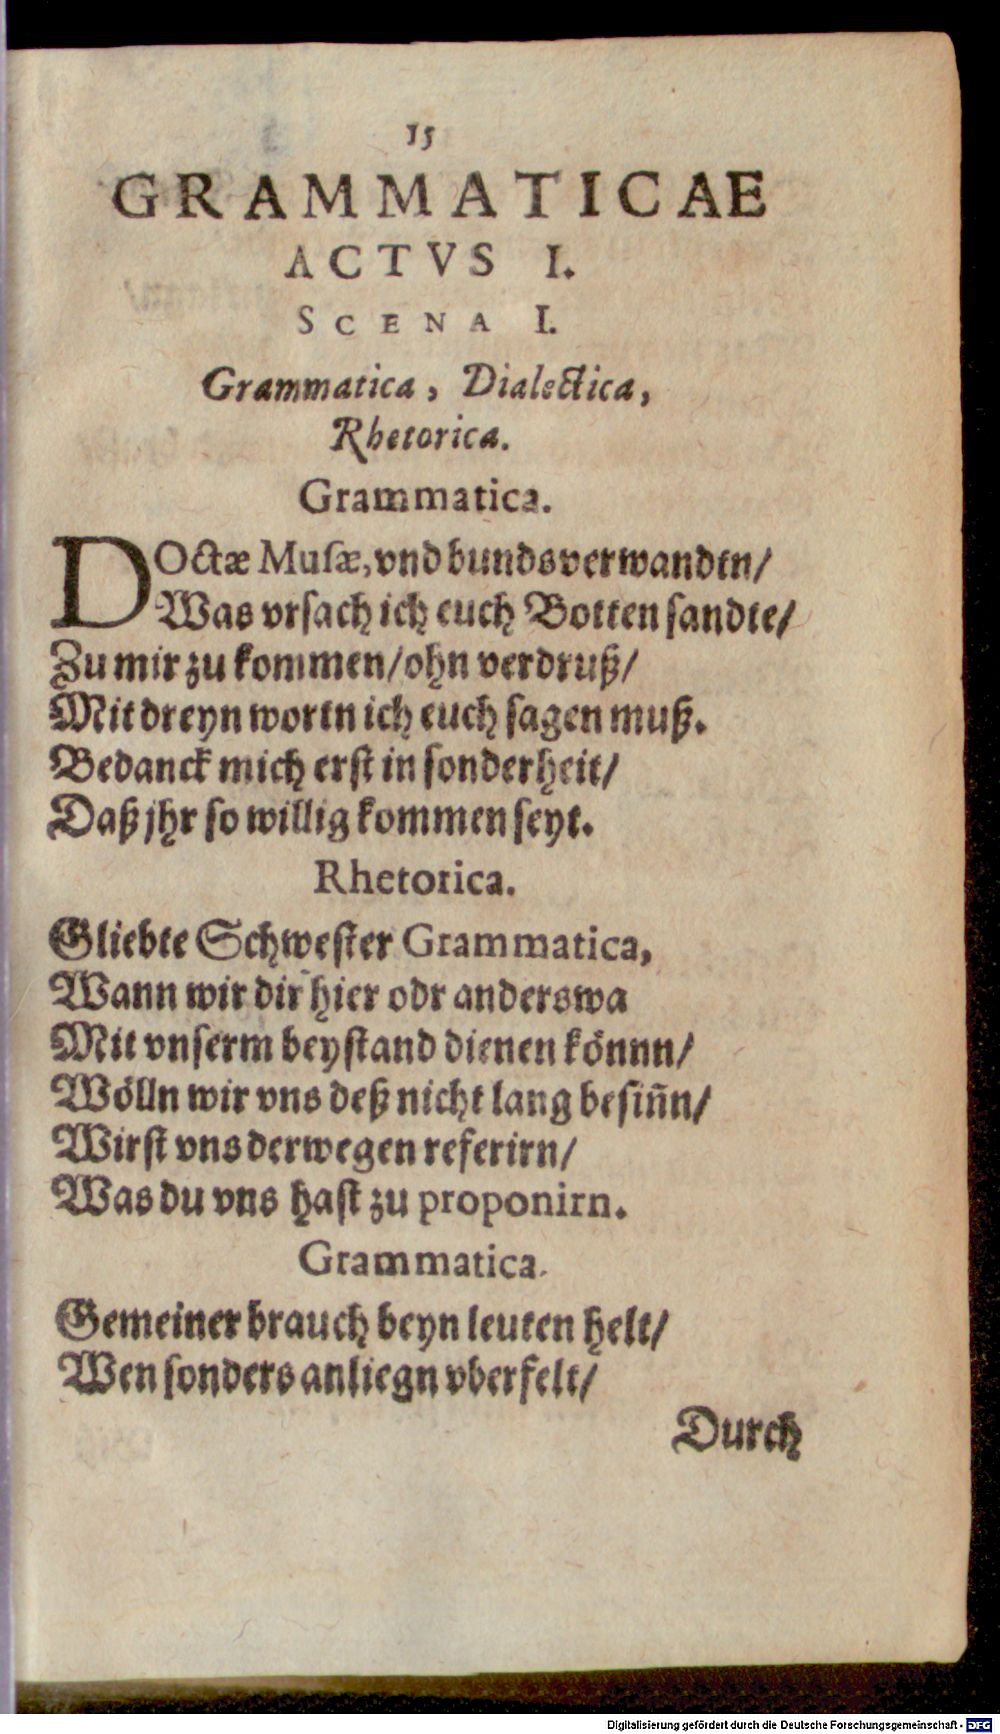 15
GRAMMATICAE
ACTVS I.
SCENA I.
Grammatica, Dialectica,
Rhetorica.
Grammatica.
DOctæ Musæ, vnd bundsverwandtn/
Was vrsach ich euch Botten sandte/
Zu mir zu kommen/ohn verdruß/
Mit dreyn wortn ich euch sagen muß.
Bedanck mich erst in sonderheit/
Daß jhr so willig kommen seyt.
Rhetorica.
Gliebte Schwester Grammatica,
Wann wir dir hier odr anderswa
Mit vnserm beystand dienen könnn/
Wölln wir vns deß nicht lang besiñn/
Wirst vns derwegen referirn/
Was du vns hast zu proponirn.
Grammatica.
Gemeiner brauch beyn leuten helt/
Wen sonders anliegn vberfelt/
Durch
Digitalisierung gefördert durch die Deutsche Forschungsgemeinschaft - DFG